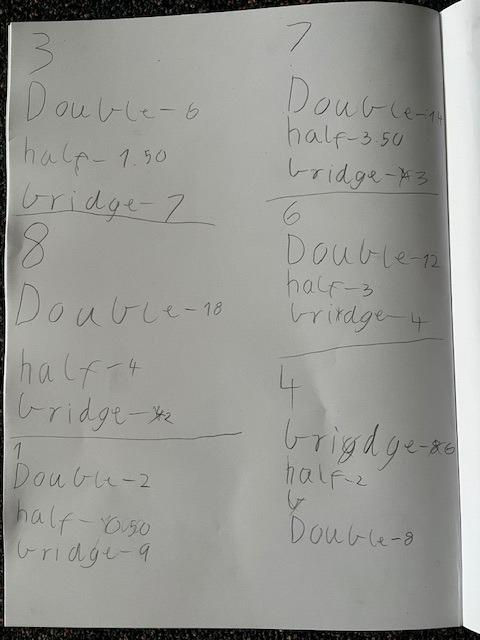 3
Double-6
half-1.50
bridge-7
8
Double-18
half-4
bridge-2
1
Double-2
half-0.50
bridge-9
7
Double-14
half-3.50
bridge-3
6
Double-12
half-3
bridge-4
4
bridge-6
half-2
b
Double-8